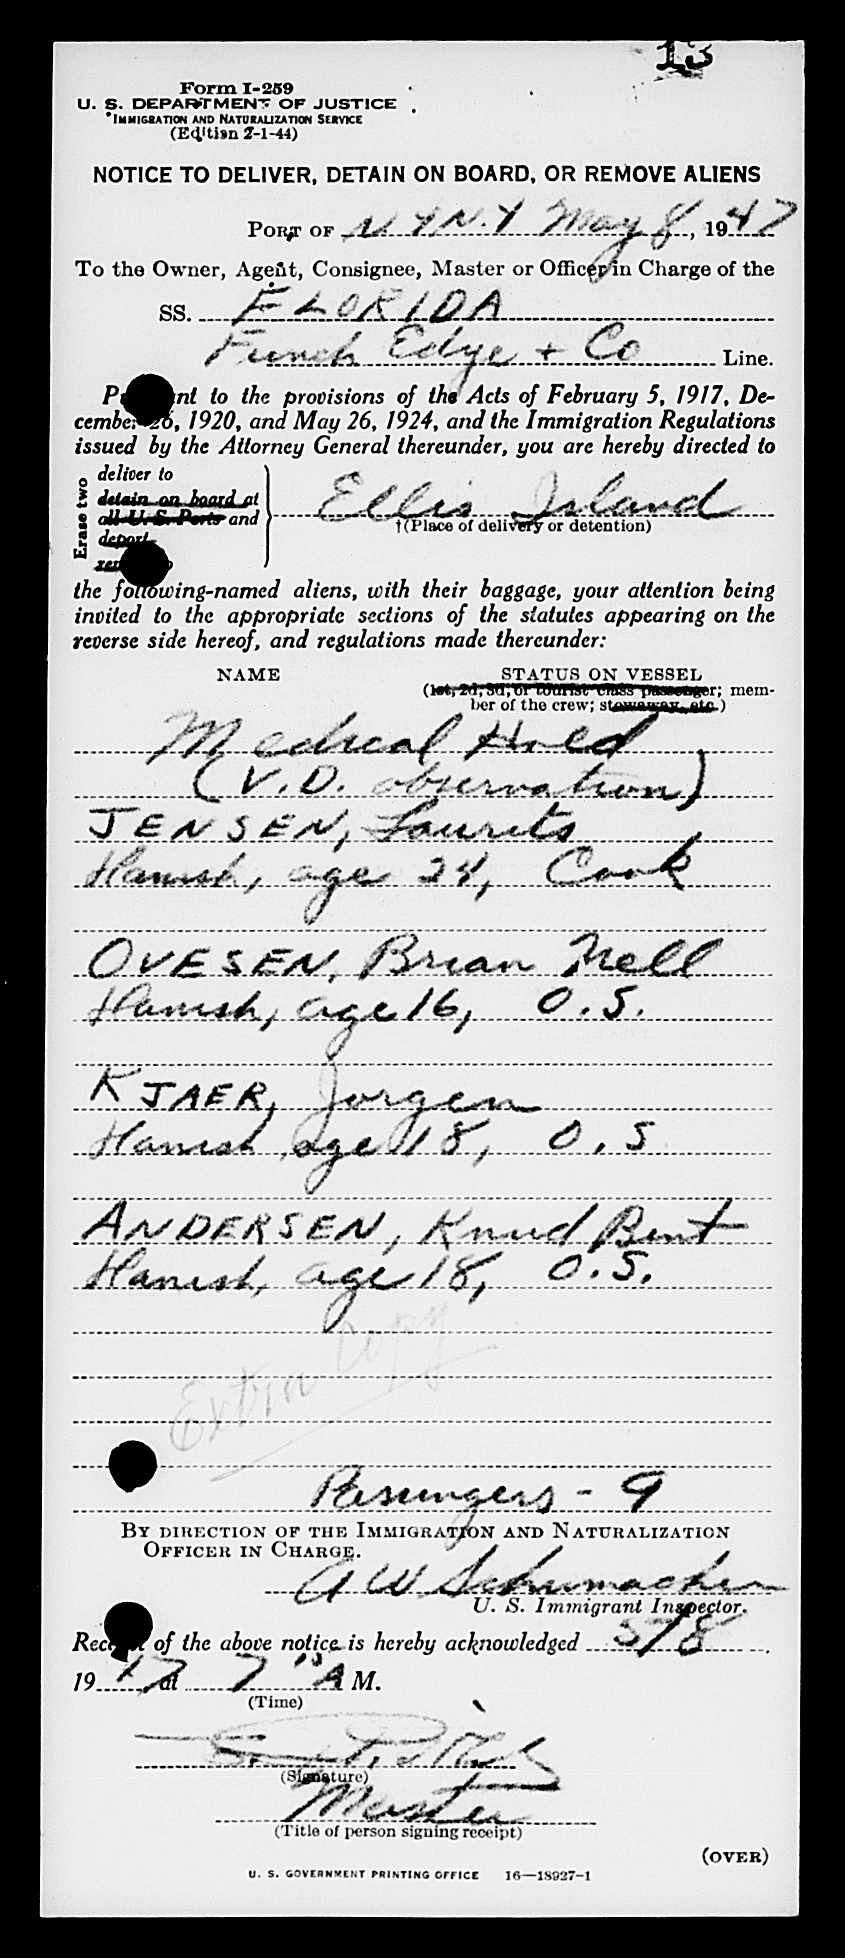 13
Form I-259
U. S. DEPARTMENT OF JUSTICE
IMMIGRATION AND NATURALIZATION SERVICE
(Edition 2-1-44)
NOTICE TO DELIVER, DETAIN ON BOARD, OR REMOVE ALIENS
PORT OF N.Y N.Y May 8, 1947
To the Owner, Agent, Consignee, Master or Officer in Charge of the
SS. FLORIDA
Funch Edye + Co Line.
Pursuant to the provisions of the Acts of February 5, 1917, De-
cember 26, 1920, and May 26, 1924, and the Immigration Regulations
issued by the Attorney General thereunder, you are hereby directed to
Erase two
deliver to
detain on board at
all U. S. Ports and
deport
Ellis Island
†(Place of delivery or detention)
the following-named aliens, with their baggage, your attention being
invited to the appropriate sections of the statutes appearing on the
reverse side hereof, and regulations made thereunder:
NAME STATUS ON VESSEL
(1st, 2d, 3d, or tourist class passenger; mem-
ber of the crew; stowaway, etc.)
Medical Hold
(V.D. observation)
JENSEN, Laurits
Danish, age 24, Cook
OVESEN, Brian Nell
Danish, age 16, O.S.
KJAER, Jorgen
Danish, age 18, O.S
ANDERSEN, Knud Bent
Danish, age 18, O.S.
Extra Copy
Passengers - 9
BY DIRECTION OF THE IMMIGRATION AND NATURALIZATION
OFFICER IN CHARGE.
A W Schumacher
U. S. Immigrant Inspector.
Receipt of the above notice is hereby acknowledged 5/8,
1947 at 7 15 A M.
(Time)
(Signature)
Master
(Title of person signing receipt)
(OVER)
U. S. GOVERNMENT PRINTING OFFICE 16—18927-1